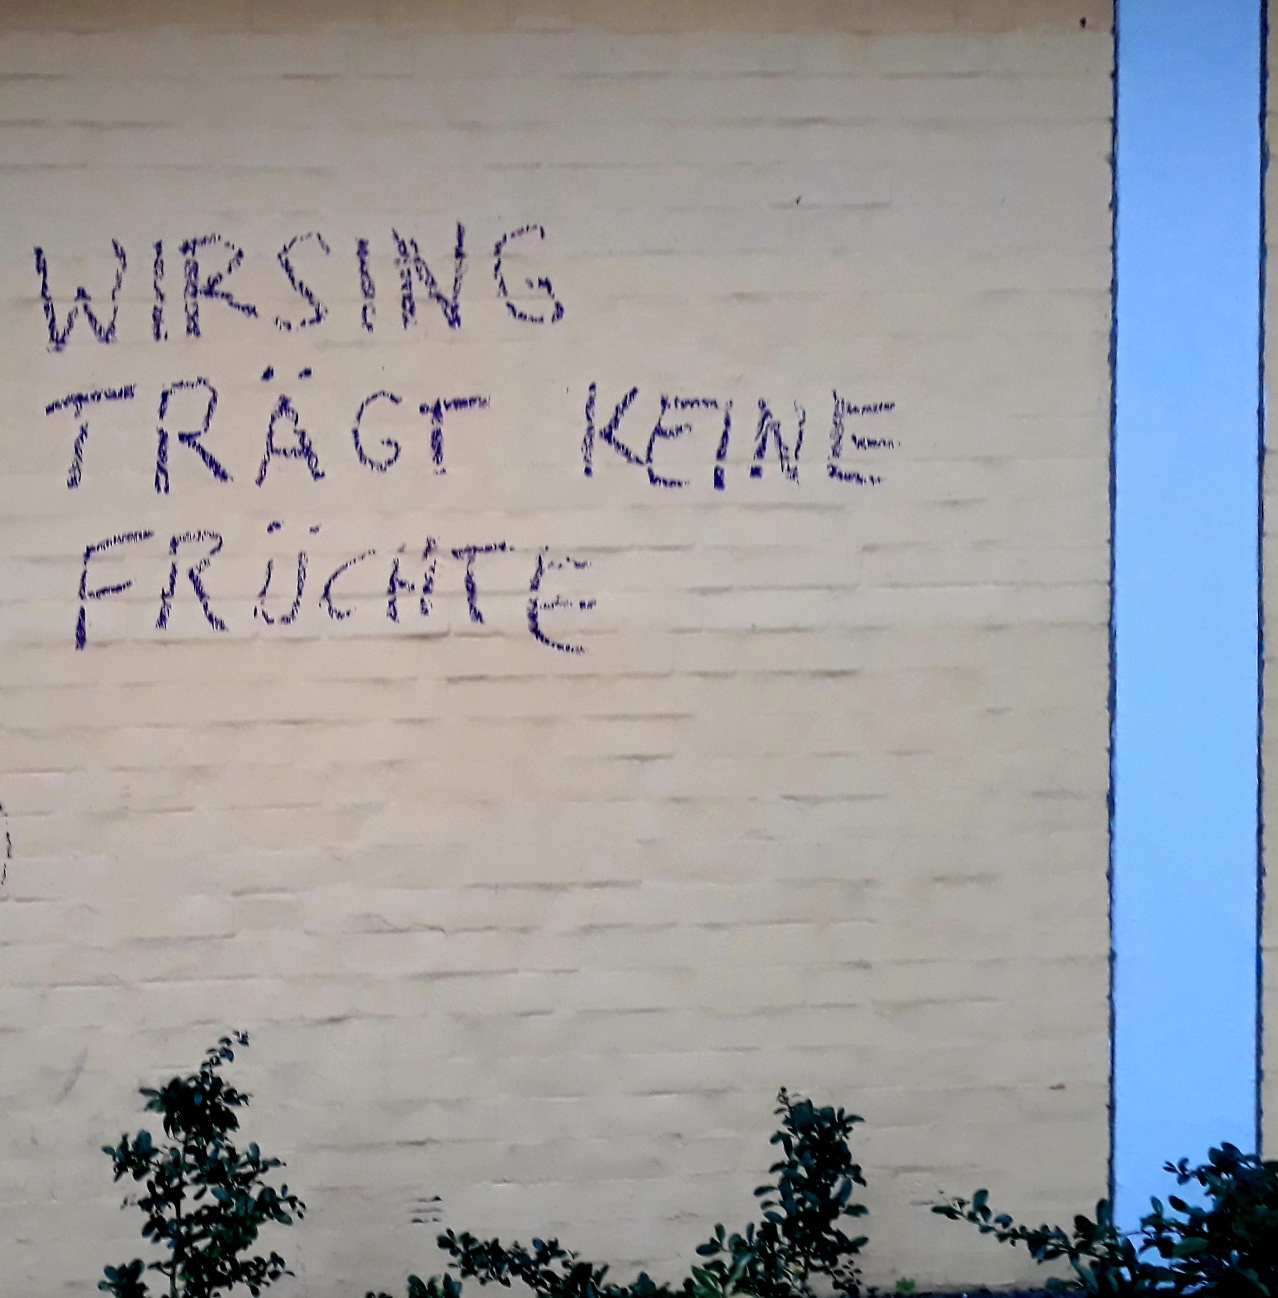 WIRSING
TRÄGT KEINE
FRÜCHTE